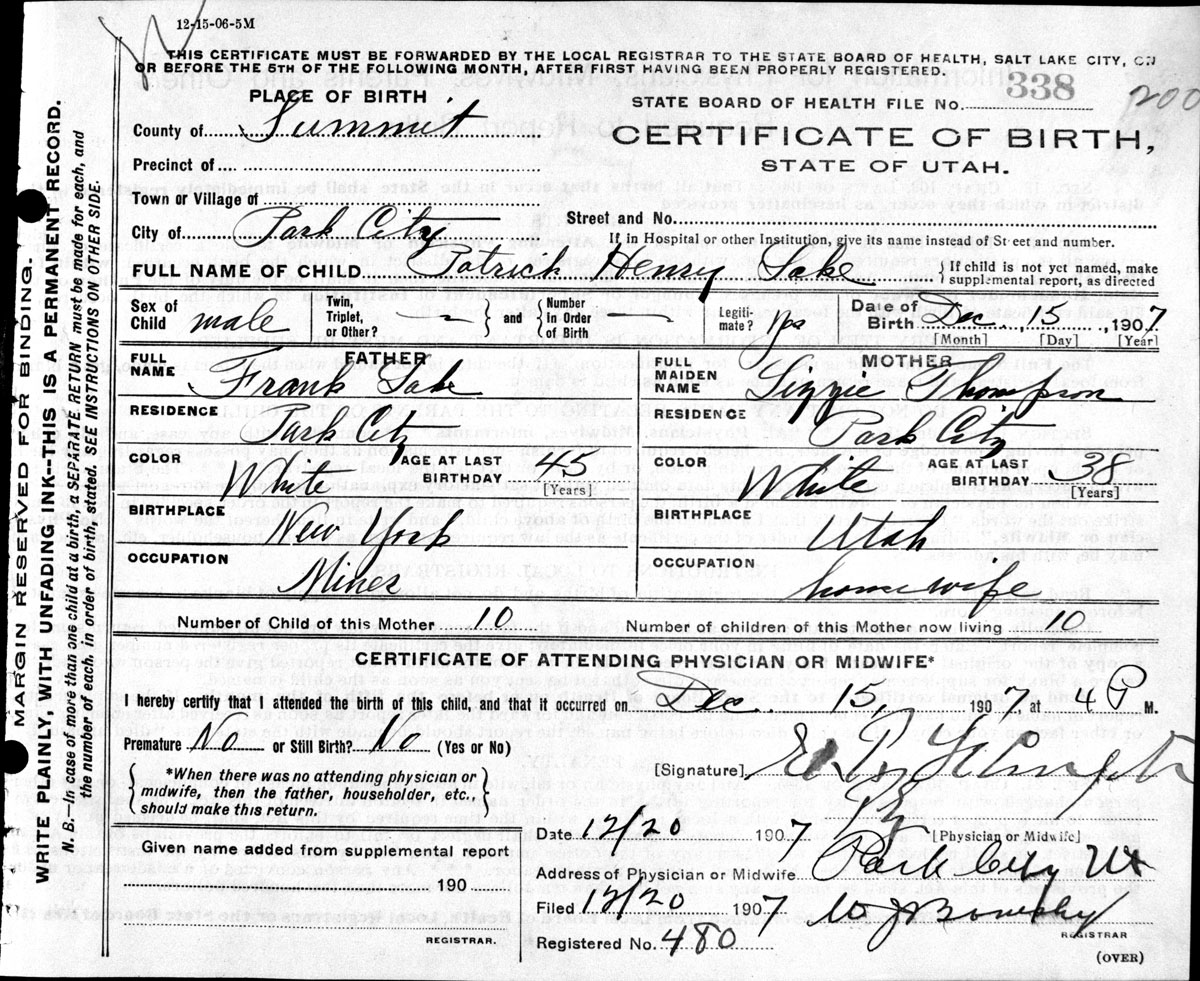 12-15-06-5M
THIS CERTIFICATE MUST BE FORWARDED BY THE LOCAL REGISTRAR TO THE STATE BOARD OF HEALTH, SALT LAKE CITY, ON
OR BEFORE THE 5TH OF THE FOLLOWING MONTH, AFTER FIRST HAVING BEEN PROPERLY REGISTERED.
PLACE OF BIRTH
STATE BOARD OF HEALTH FILE No. 338
200
County of Summit
CERTIFICATE OF BIRTH,
STATE OF UTAH.
Precinct of
Town or Village of
Street and No.
City of Park City
If in Hospital or other Institution, give its name instead of Street and number.
FULL NAME OF CHILD Patrick Henry Lake
{ If child is not yet named, make
supplemental report, as directed
Sex of Child male
Twin, Triplet, or Other? { and } Number In Order of Birth
Legitimate? yes
Date of Birth Dec. 15, 1907
[Month] [Day] [Year]
FATHER
FULL NAME Frank Lake
RESIDENCE Park City
COLOR White
AGE AT LAST BIRTHDAY 45 [Years]
BIRTHPLACE New York
OCCUPATION Miner
MOTHER
FULL MAIDEN NAME Lizzie Thompson
RESIDENCE Park City
COLOR White
AGE AT LAST BIRTHDAY 38 [Years]
BIRTHPLACE Utah
OCCUPATION housewife
Number of Child of this Mother 10
Number of children of this Mother now living 10
CERTIFICATE OF ATTENDING PHYSICIAN OR MIDWIFE*
I hereby certify that I attended the birth of this child, and that it occurred on Dec 15, 1907, at 4 P M.
Premature No or Still Birth? No (Yes or No)
[Signature]
{ *When there was no attending physician or
midwife, then the father, householder, etc.,
should make this return. }
Date 12/20 1907
[Physician or Midwife]
Given name added from supplemental report
190
REGISTRAR.
Address of Physician or Midwife Park City Ut
Filed 12/20 1907
REGISTRAR
Registered No. 480
(OVER)
MARGIN RESERVED FOR BINDING.
WRITE PLAINLY, WITH UNFADING INK--THIS IS A PERMANENT RECORD.
N. B.—In case of more than one child at a birth, a SEPARATE RETURN must be made for each, and
the number of each, in order of birth, stated. SEE INSTRUCTIONS ON OTHER SIDE.